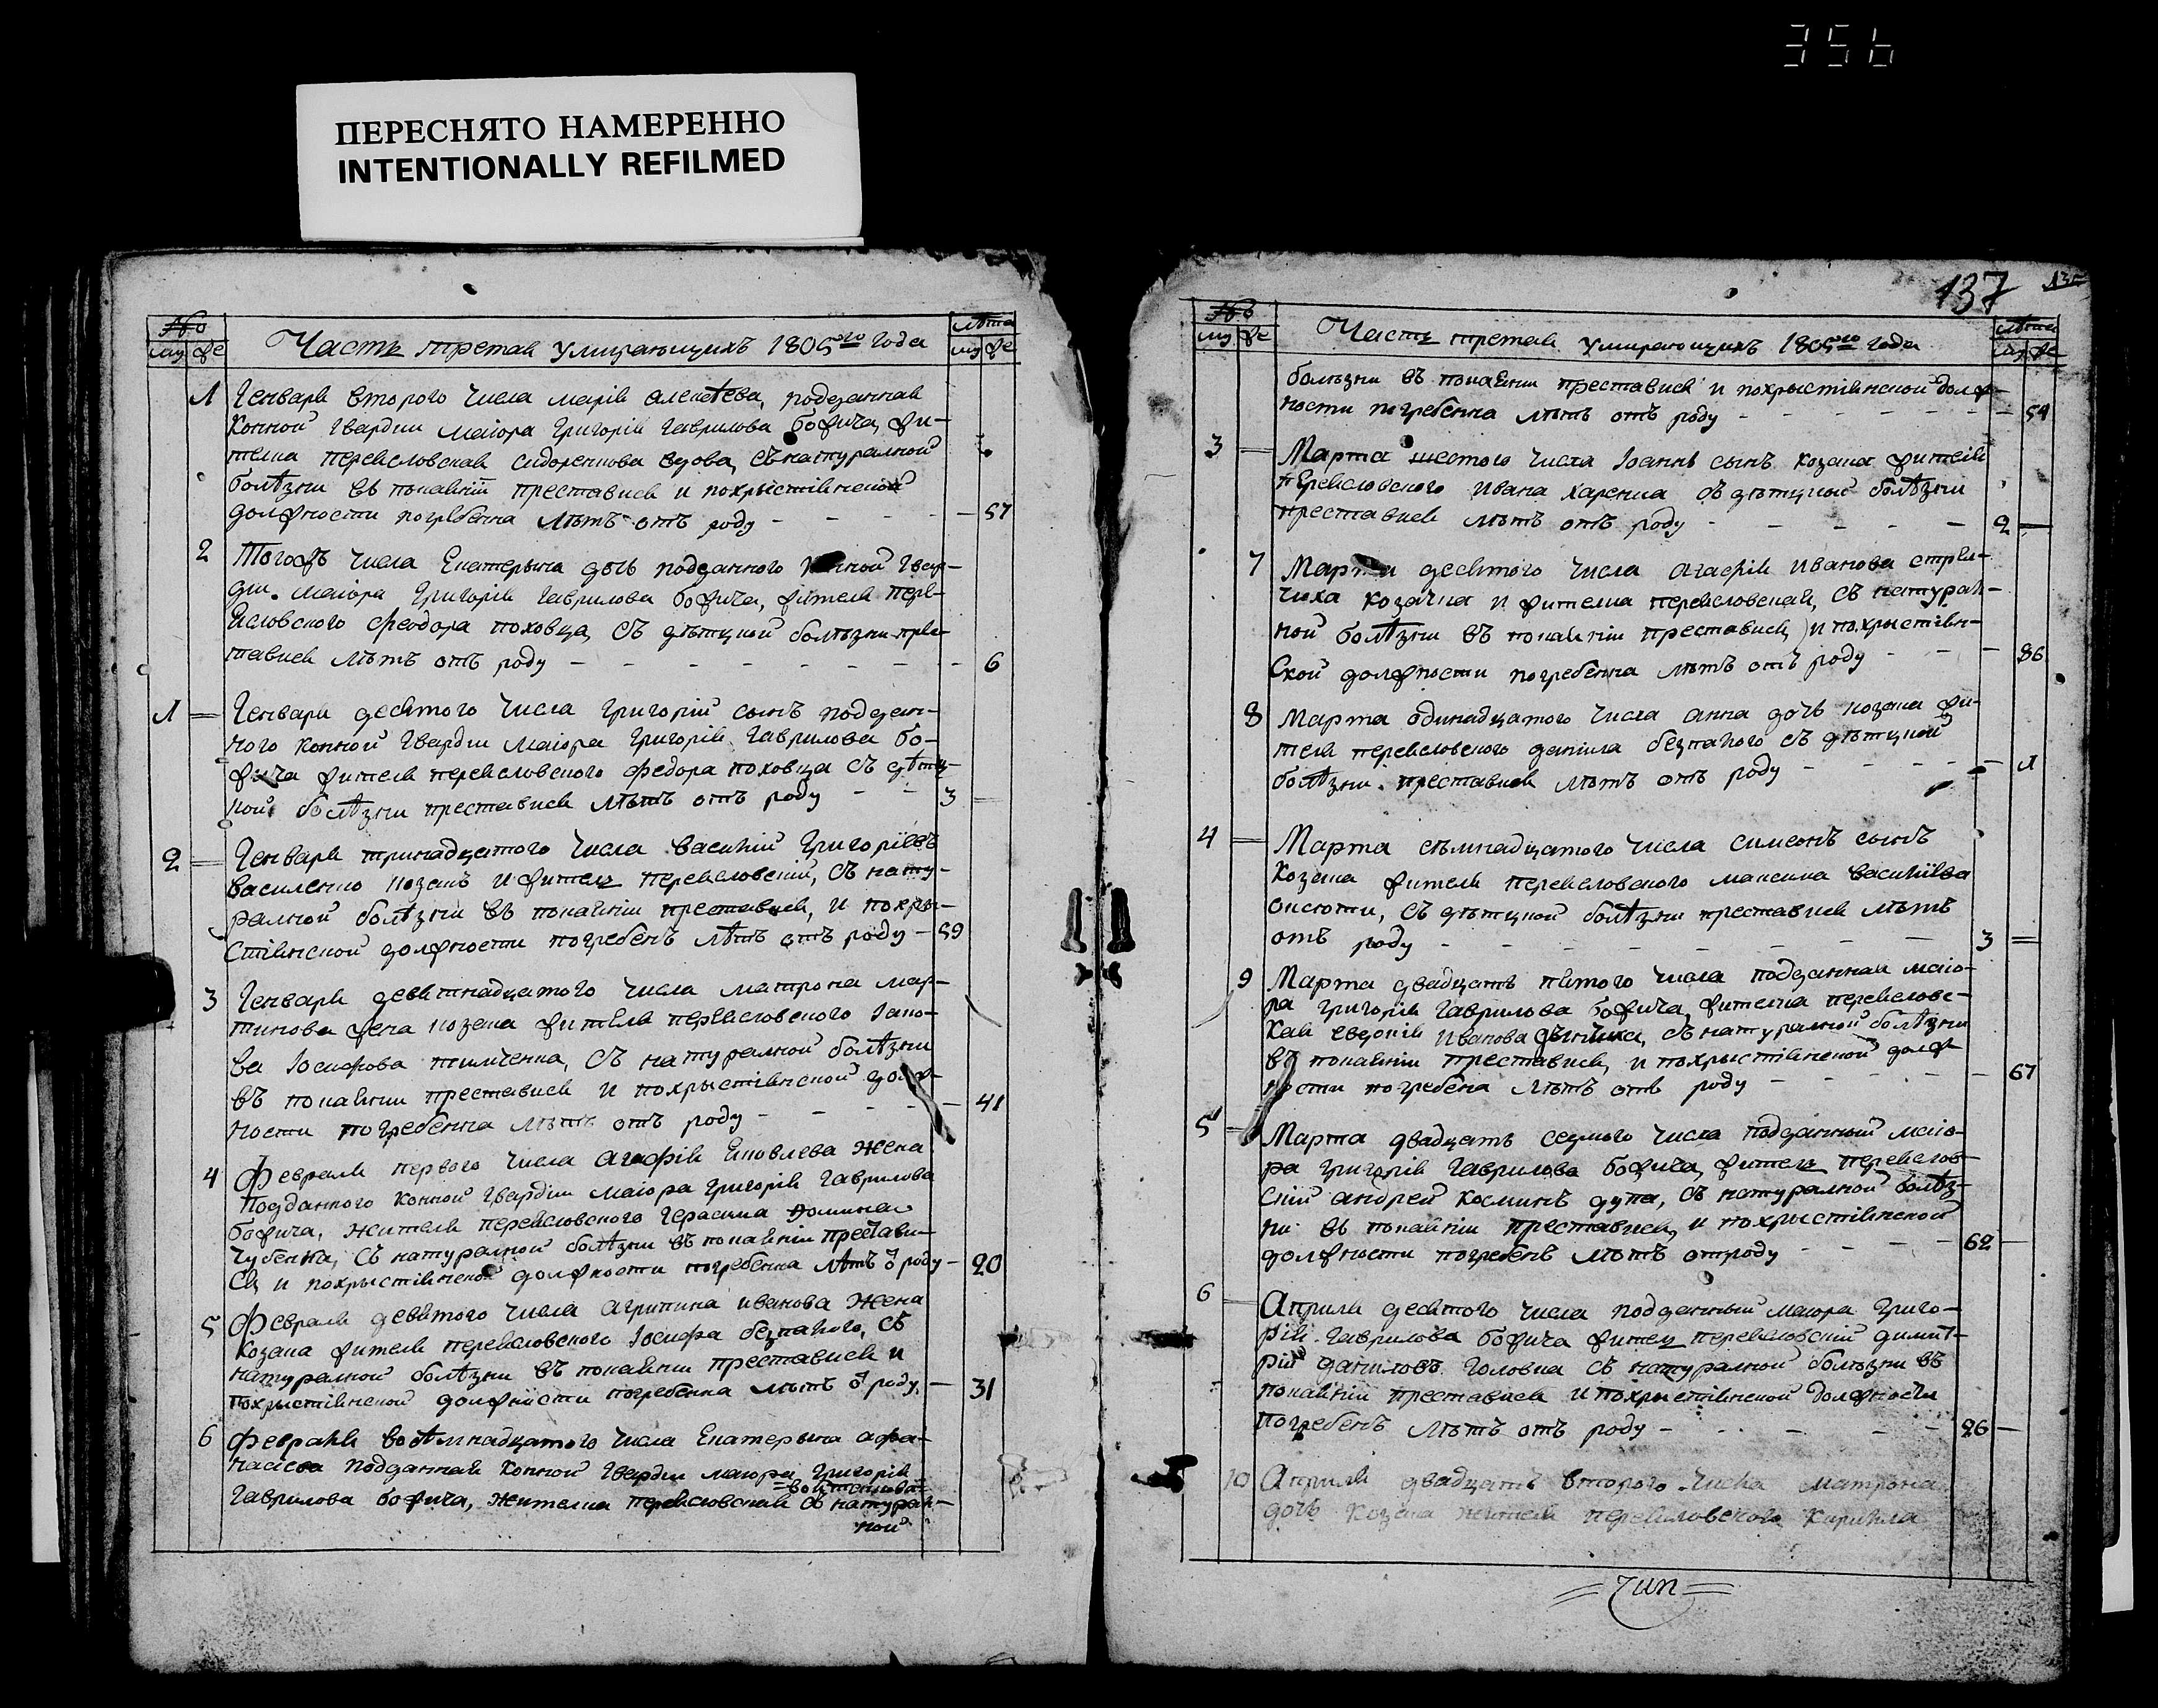 356
ПЕРЕСНЯТО НАМЕРЕННО
INTENTIONALLY REFILMED
№
му же
Часть третая умирающихъ 1805го года
лѣта
му же
1 Генваря второго числа марія алексѣева, подданная
конной гвардии маіора григорія гаврилова божича, жи-
телка переясловская сидоренкова вдова, съ натуралной
болѣзни въ покаянїи преставися и похрыстіянской
должности погребенна лѣтъ отъ роду - 57
2 Тогожъ числа Екатерына дочь подданного конной гвар-
дии маіора григорія гаврилова божича, жителя пере-
ясловского феодора поховца, съ дѣтцкой болѣзни прес-
тавися лѣтъ отъ роду - 6
1 Генваря десятого числа григорій сынъ поддан-
ного конной гвардии маіора григорія гаврилова бо-
жича жителя переясловского федора поховца съ дѣтц-
кой болѣзни преставися лѣтъ отъ роду - 3
2 Генваря тринадцатого числа василій григоріевъ
василенко козакъ и житель переясловскій, съ нату-
ралной болѣзни въ покаяніи преставися, и похры-
стіянской должности погребенъ лѣтъ отъ роду - 59
3 Генваря девятнадцатого числа матрона мар-
тинова жена козака жителя переясловского Іако-
ва Іосифова тимченка, съ натуралной болѣзни
въ покаянии преставися и похрыстіянской долж-
ности погребенна лѣтъ отъ роду - 41
4 Февраля первого числа агафія Яковлева жена
подданного конной гвардіи маіора григорія гаврилова
божича, жителя переясловского герасима
чубенка, съ натуралной болѣзни въ покаяніи престави-
ся, и похрыстіянской должности погребенна лѣтъ ѿ роду - 20
5 Февраля девятого числа агрипина иванова жена
козака жителя переясловского Іосифа безпалого, съ
натуралной болѣзни въ покаянии преставися и
похрыстіянской должности погребенна лѣтъ ѿ роду - 31
6 февраля восѣмнадцатого числа Екатерына афа-
насиева подданная конной гвардии маіора григорія
гаврилова божича, жителка переясловская съ натурал-
ной
137
№
му же
Часть третая умирающихъ 1805го года
лѣта
му же
болѣзни въ покаянии преставися и похрыстіянской долж-
ности погребенна лѣтъ отъ роду - 54
3 Марта шестого числа Іоаннъ сынъ козака жителя
переясловского ивана харенка съ дѣтцкой болѣзни
преставися лѣтъ отъ роду - 2
7 Марта десятого числа агафія иванова стрил-
чиха козачка и жителка переясловская, съ натурал-
ной болѣзни въ покаяніи преставися, и похрыстіян-
ской должности погребенна лѣтъ отъ роду - 86
8 Марта одинадцатого числа анна дочь козака жи-
теля переясловского даніила безпалого съ дѣтцкой
болѣзни преставися лѣтъ отъ роду - 1
4 Марта сѣмнадцатого числа симеонъ сынъ
козака жителя переясловского максима василіева
оксюти, съ дѣтцкой болѣзни преставися лѣтъ
отъ роду - 3
9 Марта двадцать пятого числа подданная маіо-
ра григорія гаврилова божича, жителка переясловс-
кая евдокія иванова съ натуралной болѣзни
въ покаяніи преставися, и похрыстіянской долж-
ности погребена лѣтъ отъ роду - 67
5 Марта двадцать седмого числа подданный маіо-
ра григорія гаврилова божича, житель переяслов-
скій андрей косминъ дупа, съ натуралной болѣз-
ни въ покаяніи преставися, и похрыстіянской
должности погребенъ лѣтъ отроду - 62
6 Априля десятого числа подданный маіора григо-
рія гаврилова божича житель переясловскій димит-
рій даниловъ головка съ натуралной болѣзни въ
покаяніи преставися и похрыстіянской должности
погребенъ лѣтъ отъ роду - 26
10 Априля двадцать второго числа матрона
дочь козака жителя переясловского кирилла